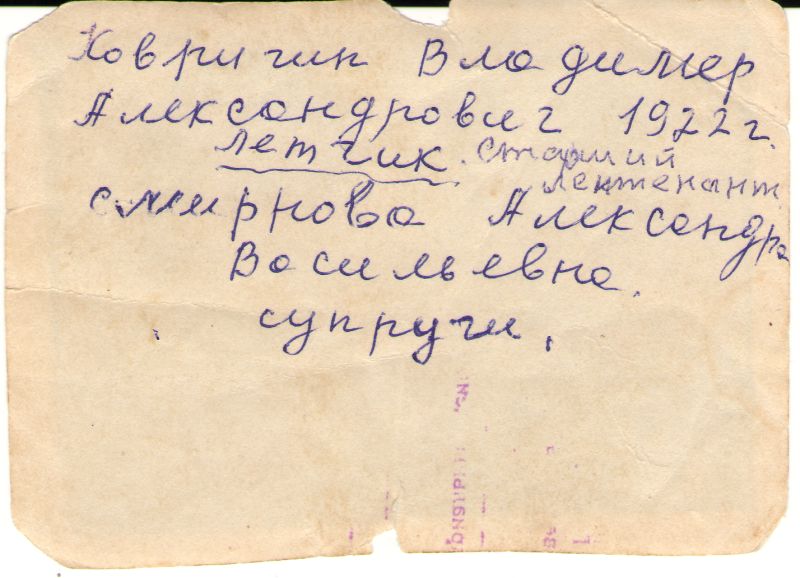 Ховричин Владимер
Александрович 1922г.
летчик. старший
лектенант
смирнова Александра
Васильевна.
супруги.